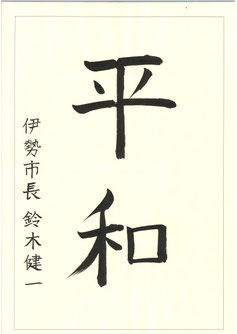 平和
伊勢市長 鈴木健一